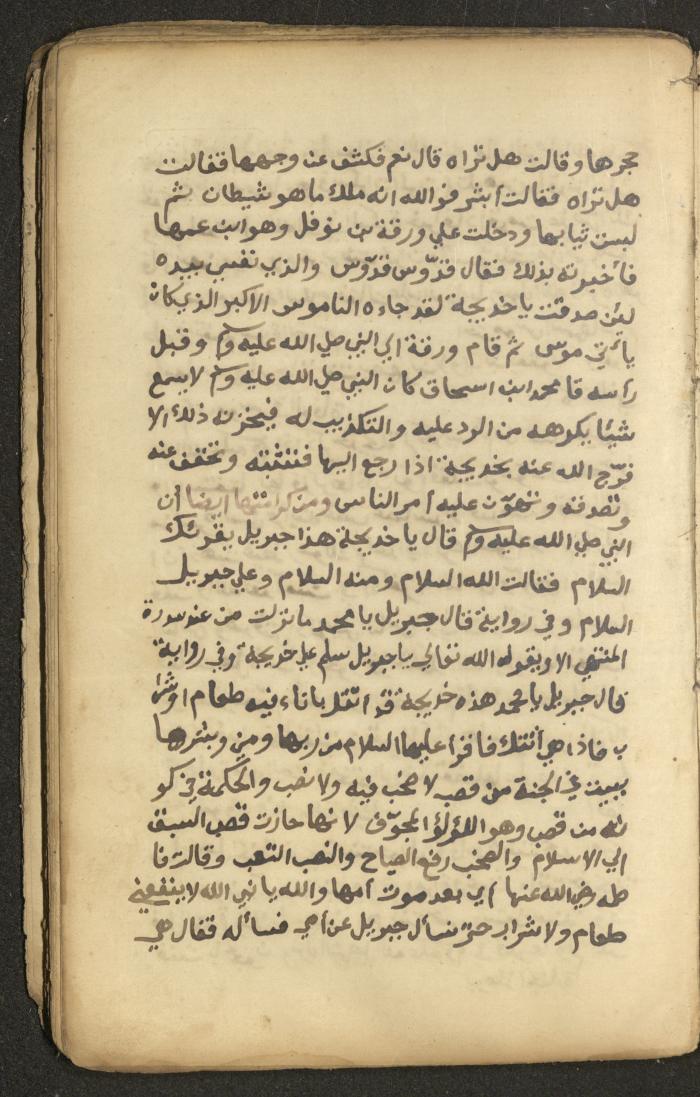 حجرها وقالت هل تراه قال نعم فكشف عن وجهها فقالت
هل تراه فقالت ابشر فوالله انه ملك ما هو شيطان ثم
لبست ثيابها ودخلت علي ورقة بن نوفل وهو ابن عمها
فأخبرته بذلك فقال قدّوس قدّوس والذي نفسي بيده
لئن صدقت يا خديجة لقد جاءه الناموس الاكبر الذي كان
يأتي موسى ثم قام ورقة الي النبي صلي الله عليه وم وقبل
رأسه قا محمد ابن اسحاق كان النبي صلي الله عليه وم لا يسمع
شيئا يكرهه من الرد عليه والتكذيب له فيحزنه ذلك الا
فرّج الله عنه بخديجة اذا رجع اليها فتثبته وتخفف عنه
وتصدقه وتهوّن عليه أمر الناس ومن كرامتها ايضا أن
النبي صلي الله عليه وم قال يا خديجة هذا جبريل يقرئك
السلام فقالت الله السلام ومنه السلام وعلي جبريل
السلام وفي رواية قال جبريل يا محمد ما نزلت من عند سدرة
المنتهي الا ويقول الله تعالي يا جبريل سلم علي خديجة وفي رواية
قال جبريل يا محمد هذه خديجة قد اتتك باناء فيه طعام او شرا
ب فاذا هي أتتك فاقرأ عليها السلام من ربها ومني وبشرها
ببيت في الجنة من قصب لا صخب فيه ولا نصب والحكمة في كو
نه من قصب وهو اللؤلؤ المجوّف لانها حازت قصب السبق
الي الاسلام والصخب رفع الصياح والنصب التعب وقالت فا
طمه رضي الله عنها أي بعد موت أمها والله يا نبي الله لا ينفعني
طعام ولا شراب حتى تسأل جبريل عن أمي فسأله فقال هي